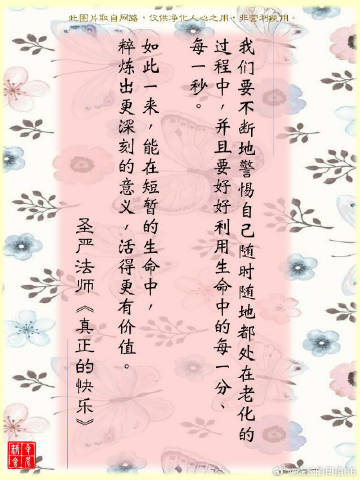 此图片取自网路，仅供净化人心之用，非营利使用。
我们要不断地警惕自己随时随地都处在老化的
过程中，并且要好好利用生命中的每一分、
每一秒。
如此一来，能在短暂的生命中，
粹炼出更深刻的意义，活得更有价值。
圣严法师《真正的快乐》